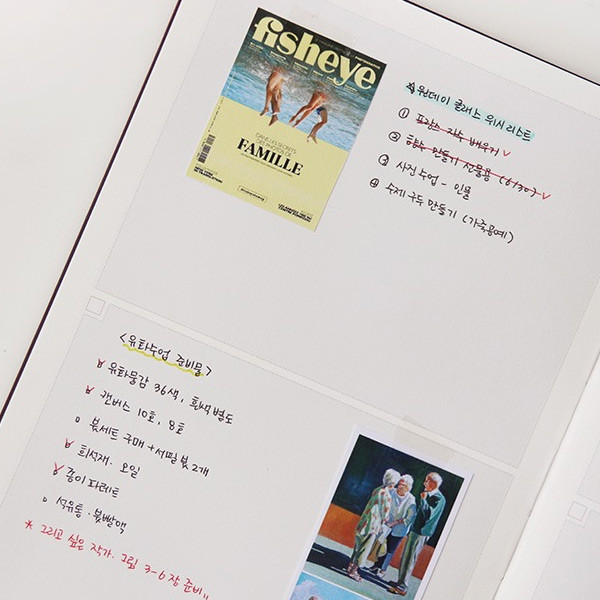 fisheye
FAMILLE
원데이 클래스 위시리스트
① 프랑스 자수 배우기
② 향수 만들기 선물용 (6/30)
③ 사진수업 - 인물
④ 수제구두 만들기 (가죽공예)
<유화수업 준비물>
유화물감 36색, 흰색 별도
캔버스 10호, 8호
붓세트 구매 + 서필 붓 2개
희석재. 오일
종이 파레트
석유통. 붓빨액
* 그리고 싶은 작가. 그림 3-6장 준비!!